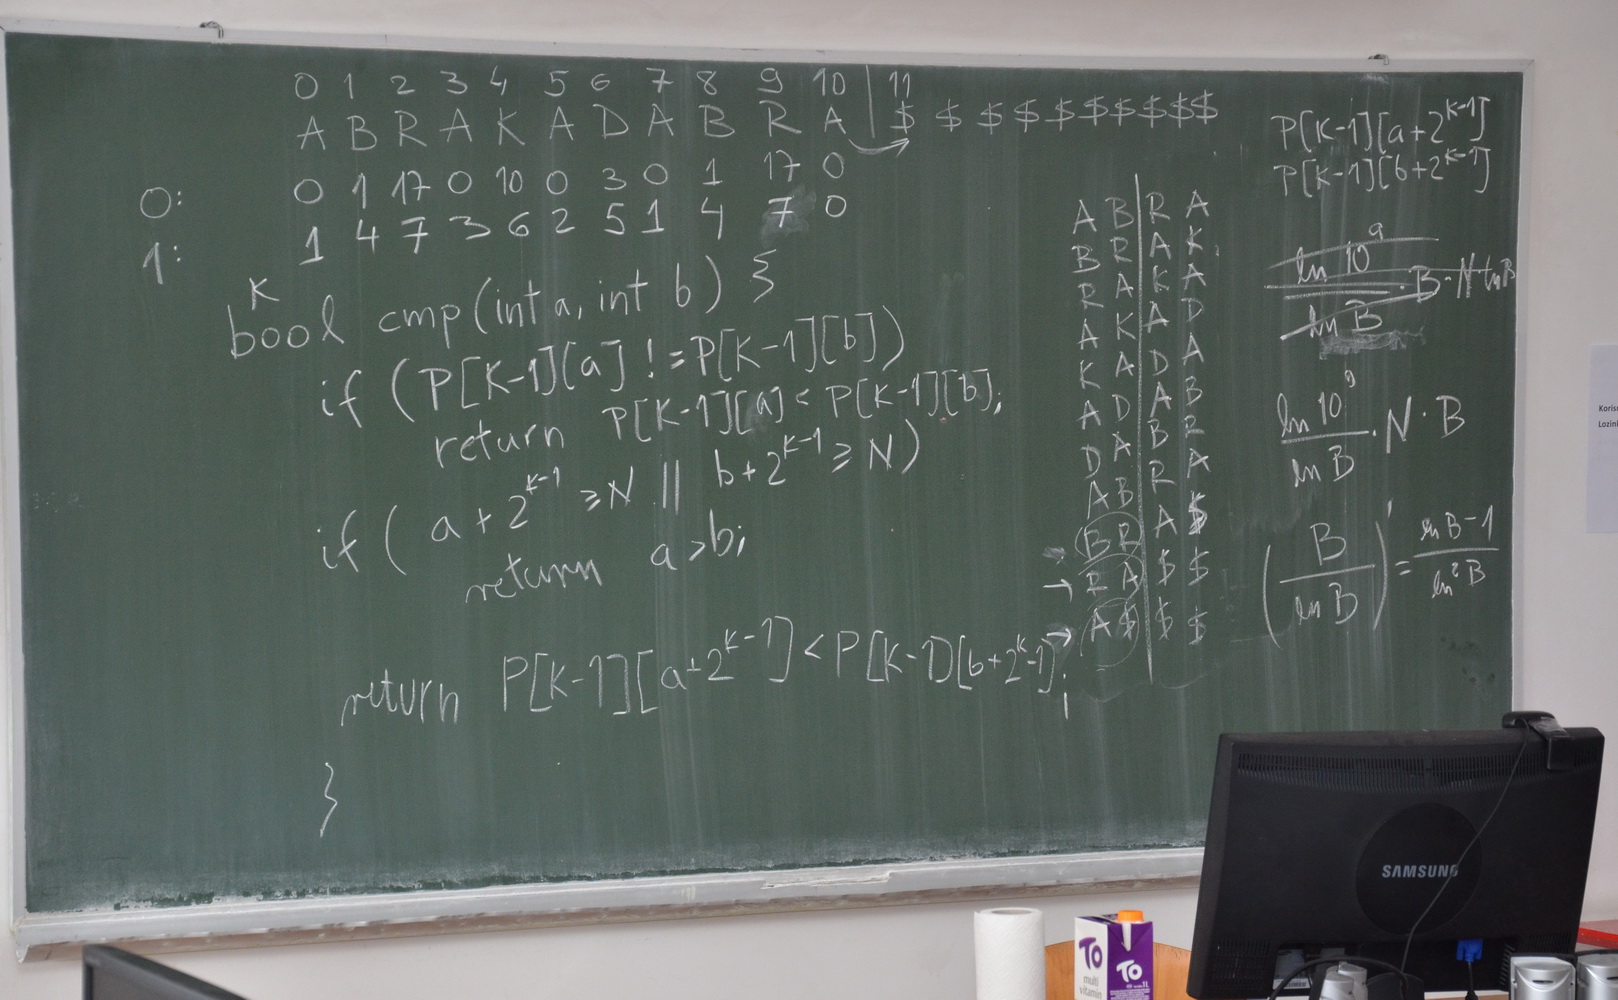 0 1 2 3 4 5 6 7 8 9 10 | 11
A B R A K A D A B R A | $ $ $ $ $ $ $ $ $ $
0: 0 1 17 0 10 0 3 0 1 17 0
1: 1 4 7 3 6 2 5 1 4 7 0
K
bool cmp(int a, int b) {
if (P[K-1][a] != P[K-1][b])
return P[K-1][a] < P[K-1][b];
if (a+2^{K-1} ≥ N || b+2^{K-1} ≥ N)
return a>b;
return P[K-1][a+2^{K-1}] < P[K-1][b+2^{K-1}];
}
A B | R A
B R | A K
R A | K A
A K | A D
K A | D A
A D | A B
D A | B R
A B | R A
B R | A $
→ R A | $ $
→ A $ | $ $
P[K-1][a+2^{K-1}]
P[K-1][b+2^{K-1}]
ln 10^9 / ln B · B · N · ln B
ln 10^9 / ln B · N · B
(B / ln B)' = ln B - 1 / ln² B
SAMSUNG
TO
multi
vitamin
TO
1L
Koris
Lozin